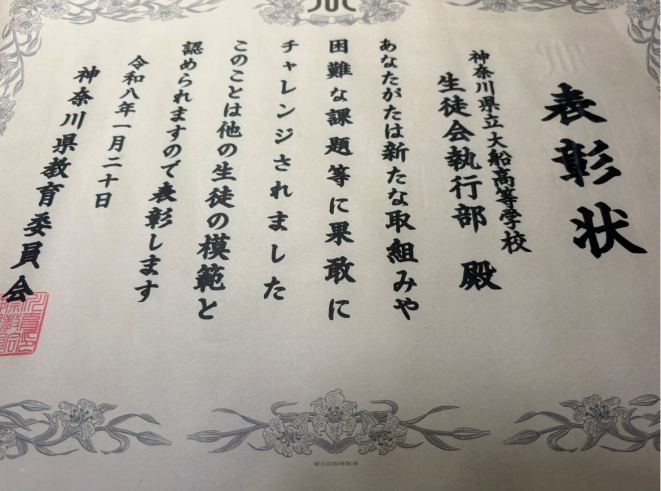 表彰状
神奈川県立大船高等学校
生徒会執行部 殿
あなたがたは新たな取組みや
困難な課題等に果敢に
チャレンジされました
このことは他の生徒の模範と
認められますので表彰します
令和八年一月二十日
神奈川県教育委員会